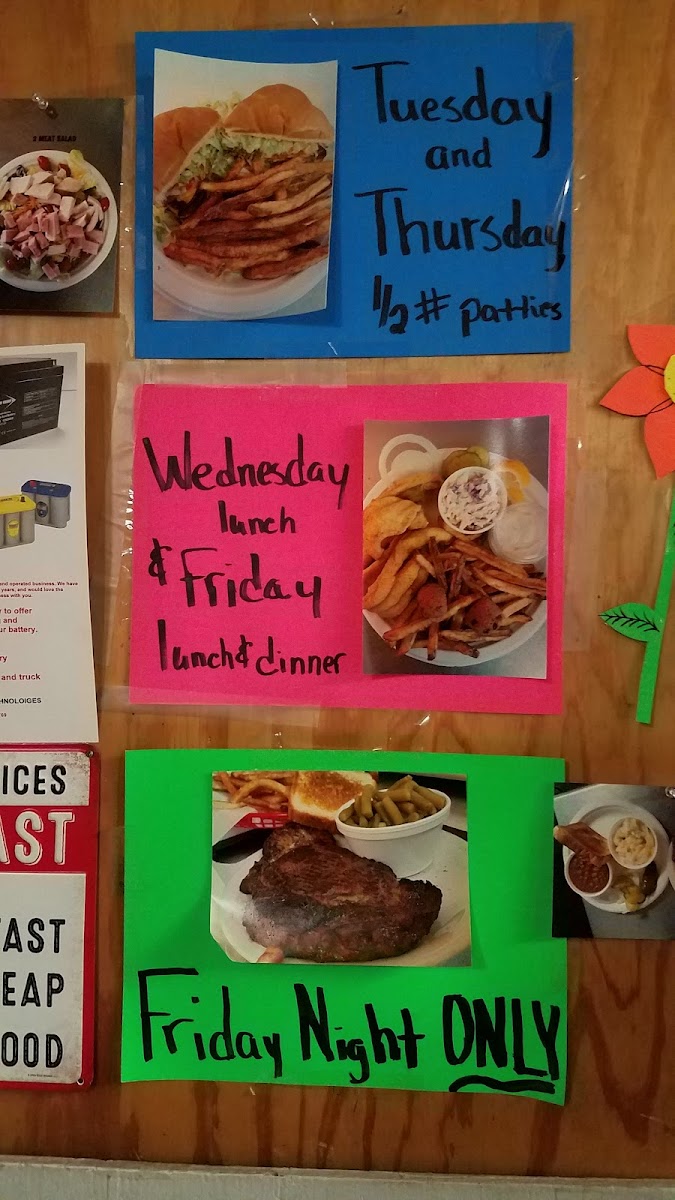 Tuesday
and
Thursday
1/2 # patties
3 MEAT SALAD
Wednesday
lunch
& Friday
lunch & dinner
and operated business. We have
years, and would love the
ness with you.
y to offer
and
ur battery.
ry
and truck
HNOLOIGES
ICES
AST
FAST
EAP
OOD
Friday Night ONLY